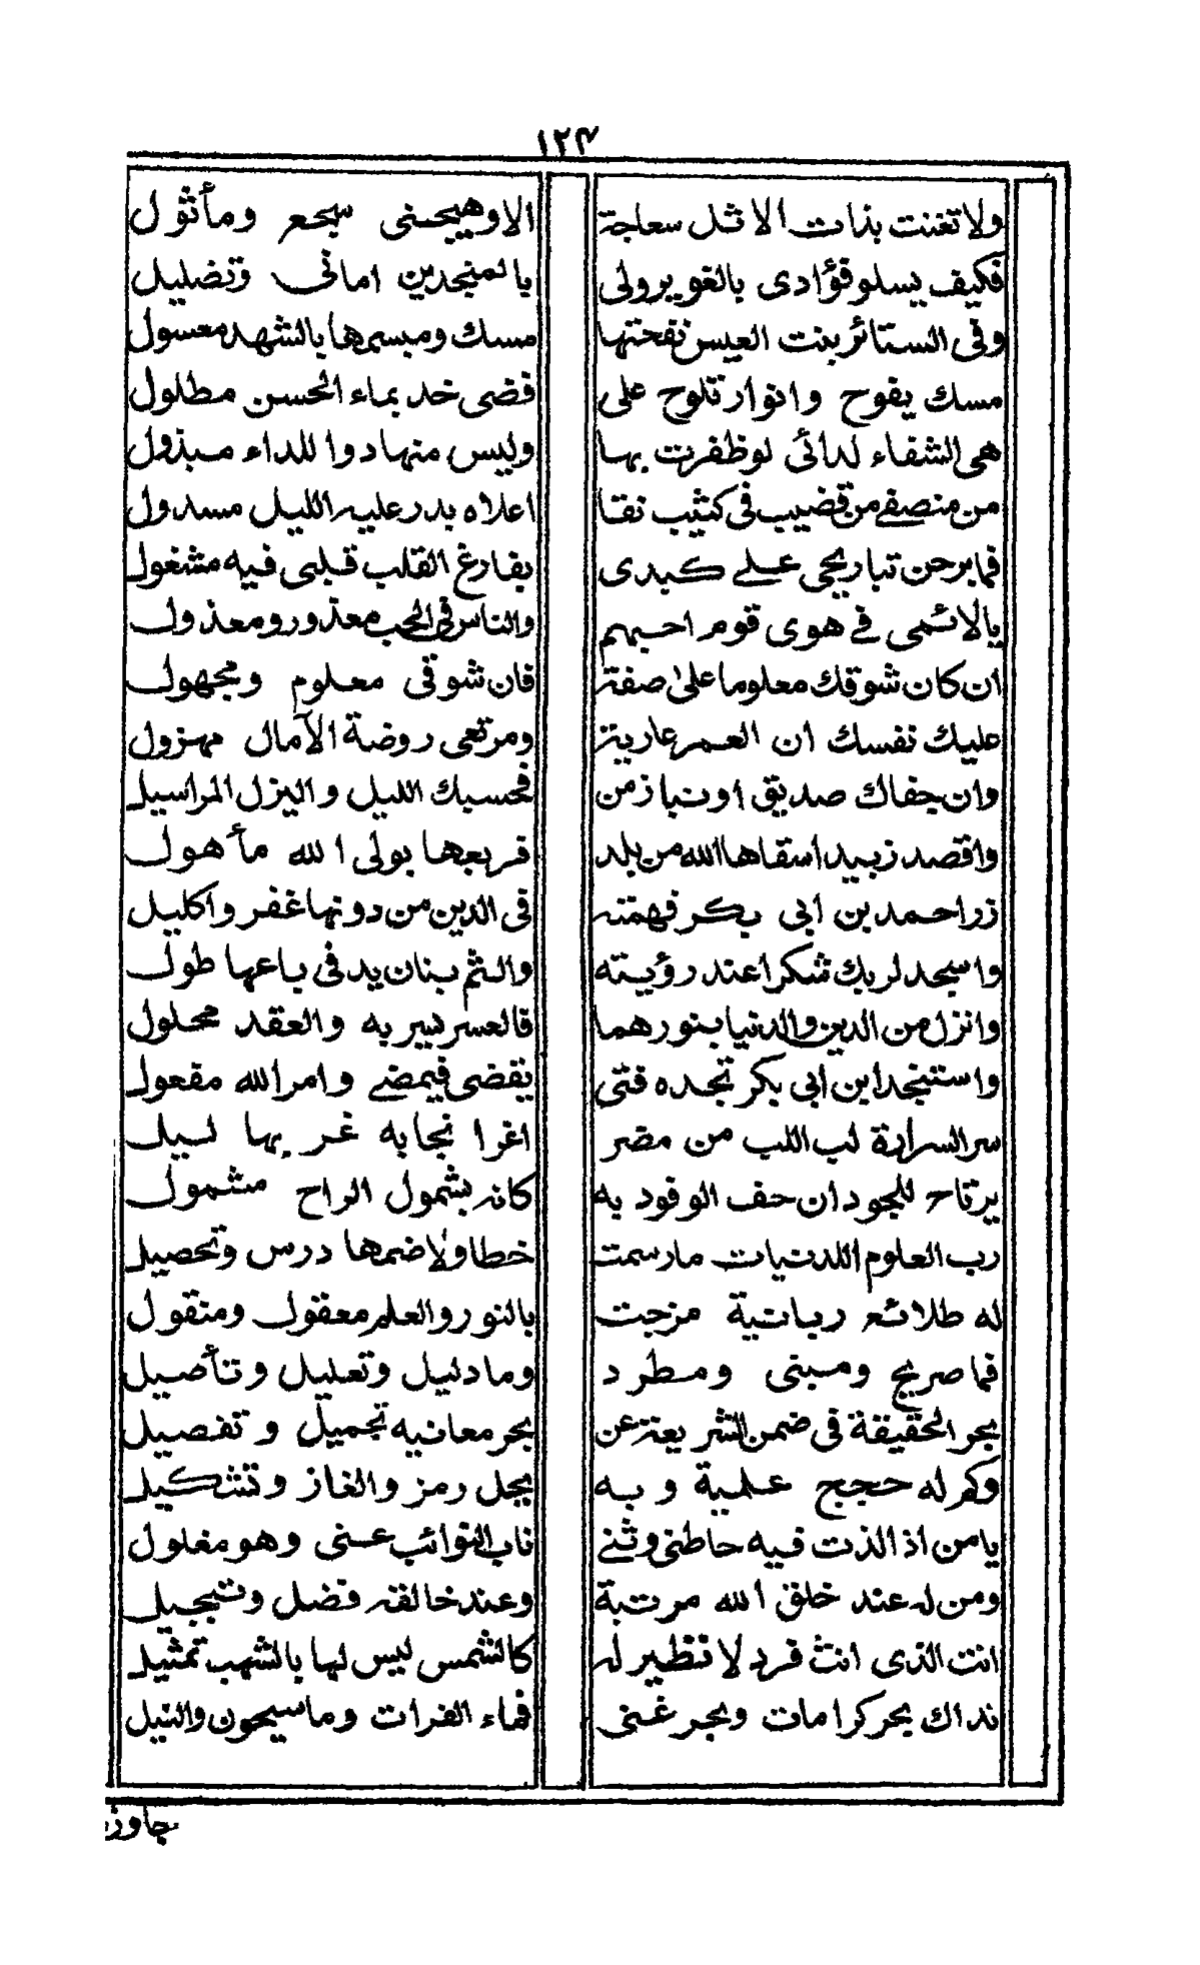 ١٢٤
ولا تغنت بذات الاثل ساجعة الا وهيجنى سجع ومأثول
فكيف يسلو فؤادى بالغوير ولى بالمنجدين امانى وتضليل
وفى الستائر بنت العيس نفحتها مسك ومبسمها بالشهد معسول
مسك يفوح وانوار تلوح على فضى خد بماء الحسن مطلول
هى الشفاء لدائى لو ظفرت بها وليس منها دوا للداء مبذول
من منصفى من قضيب فى كثيب نقا اعلاه بدر عليه الليل مسدول
فما برحن تباريحى على كبدى بفارغ القلب قلبى فيه مشغول
يا لائمى فى هوى قوم احبهم والناس فى الحب معذور ومعذول
ان كان شوقك معلوما على صفة فان شوقى معلوم ومجهول
عليك نفسك ان العمر عارية ومرتعى روضة الآمال مهزول
وان جفاك صديق او نبا زمن فحسبك الليل والبزل المراسيل
واقصد زبيد اسقاها الله من بلد فربعها بولى الله مأهول
زر احمد بن ابى بكر فهمته فى الدين من دونها غفر واكليل
واسجد لربك شكرا عند رؤيته والثم بنان يد فى باعها طول
وانزل من الدين والدنيا بنورهما فالعسر يسر به والعقد محلول
واستنجد ابن ابى بكر تجده فتى يقضى فيمضى وامر الله مفعول
سر السرارة لب اللب من مضر اغرا نجابه غر بها ليل
يرتاح للجود ان حف الوفود به كانه بشمول الراح مشمول
رب العلوم اللدنيات ما رسمت خطا ولا ضمها درس وتحصيل
له طلائع ربانية مزجت بالنور والعلم معقول ومنقول
فما صريح ومبنى ومطرد وما دليل وتعليل وتأصيل
بحر الحقيقة فى ضمن الشريعة عن بحر معانيه تجميل وتفصيل
وكم له حجج علمية وبه يحل رمز والغاز وتشكيل
يا من اذ الذت فيه حاطنى وثنى ناب النوائب عنى وهو مغلول
ومن له عند خلق الله مرتبة وعند خالقه فضل وتبجيل
انت الذى انت فرد لا نظير له كالشمس ليس لها بالشهب تمثيل
نداك بحر كرامات وبحر غنى فماء الفرات وما سيحون والنيل
جاوز